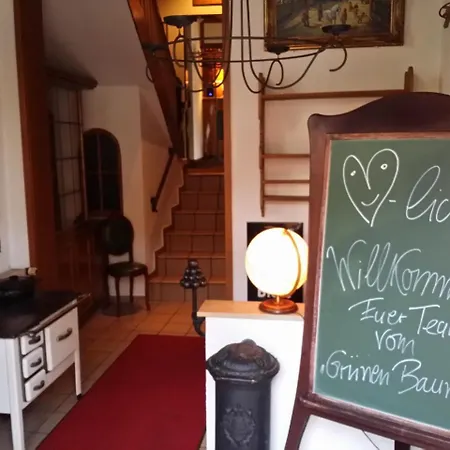 -lic
Willkomm
Euer Tea
vom
"Grünen Baum